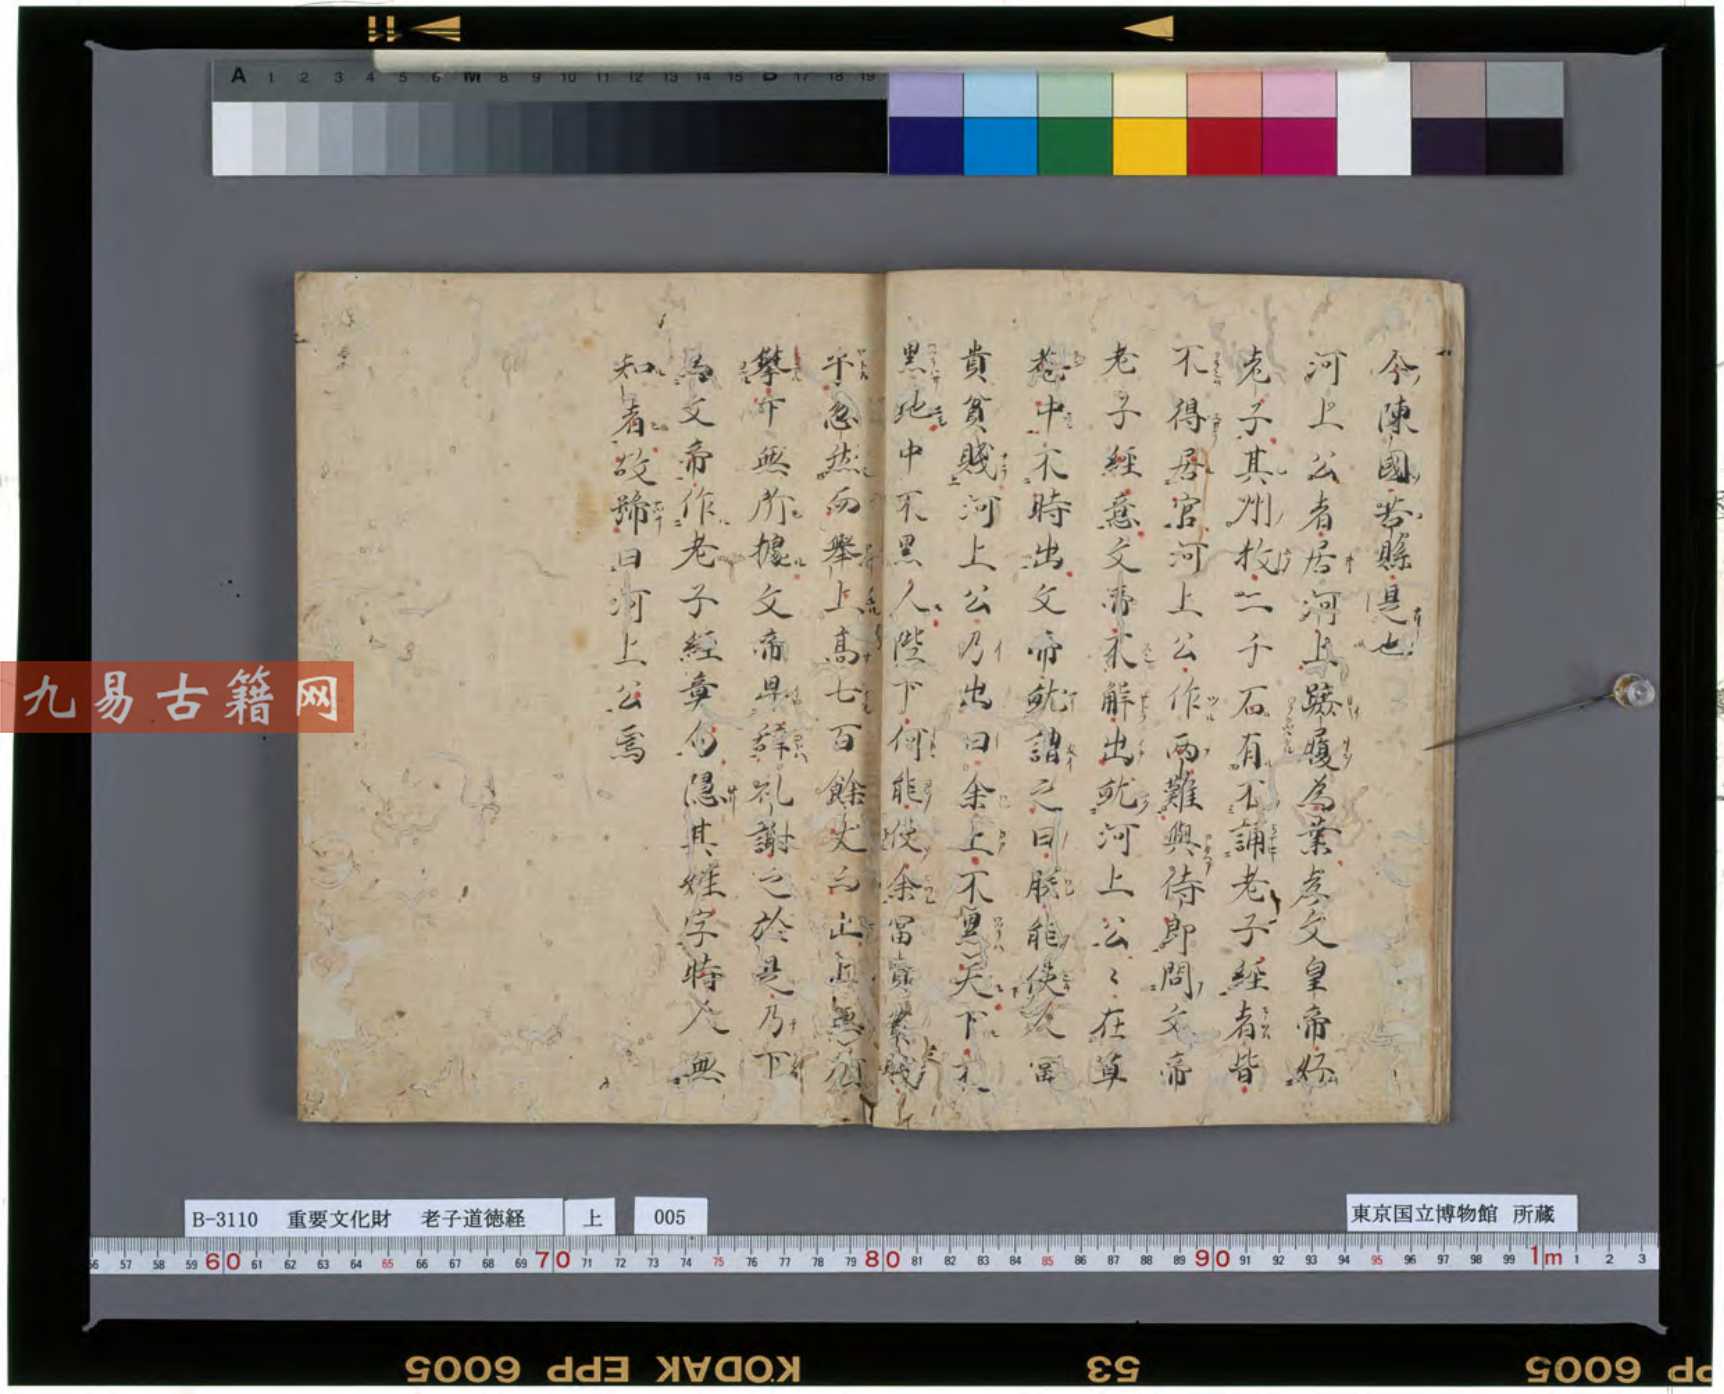 今陳國苦縣是也
河上公者居河上躡履為業孝文皇帝好
老子其州牧二千石有不誦老子經者皆
不得居官河上公作兩難與侍郎問文帝
老子經意文帝不解出就河上公〻在草
菴中不時出文帝就謂之曰朕能使人冨
貴貧賤河上公乃出曰余上不累天下不
累地中不累人陛下何能使余冨貴貧賤
乎忽然而舉上高七百餘丈而止上無所
攀下無所據文帝卑辞礼謝之於是乃下
為文帝作老子經章句隠其姓字時人無
知者故号曰河上公焉
九易古籍网
B-3110 重要文化財 老子道徳経 上 005
東京国立博物館 所蔵
A 1 2 3 4 5 6 M 8 9 10 11 12 13 14 15 B 17 18 19
56 57 58 59 60 61 62 63 64 65 66 67 68 69 70 71 72 73 74 75 76 77 78 79 80 81 82 83 84 85 86 87 88 89 90 91 92 93 94 95 96 97 98 99 1m 1 2 3
KODAK EPP 6005
53
PP 6005